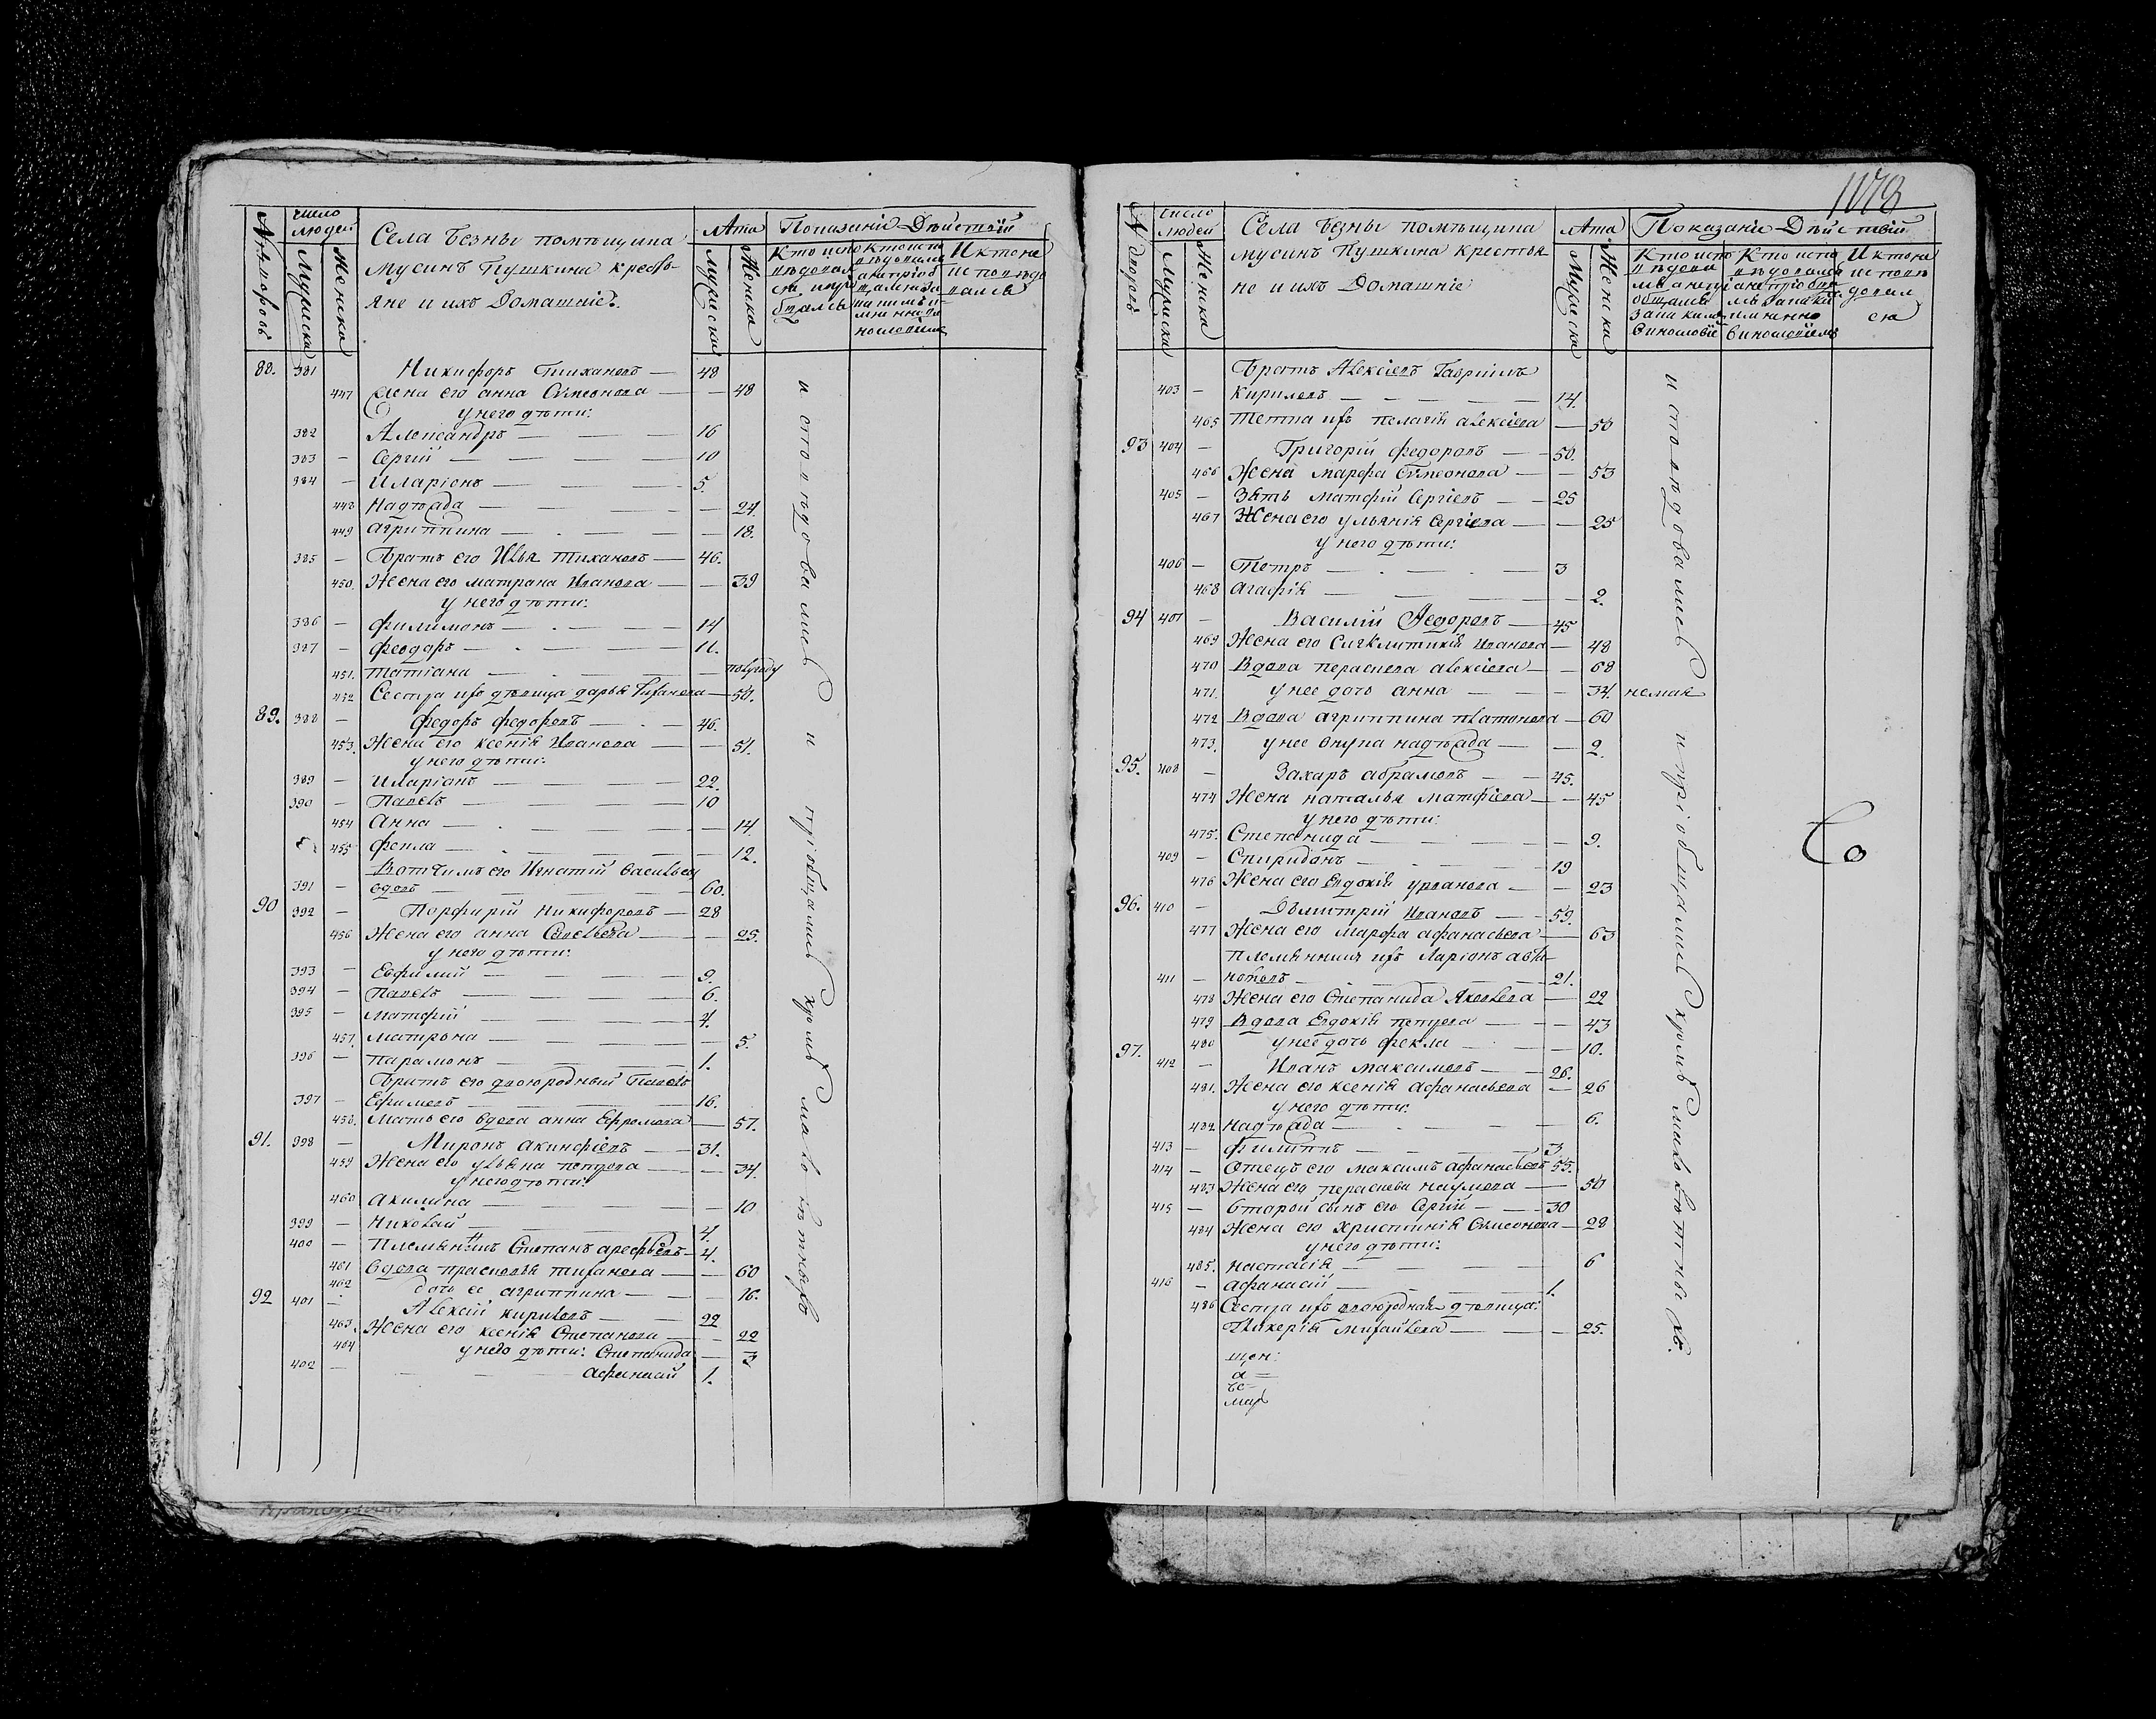 число людей
Села Безны помѣщика
Мусинъ Пушкина крестья-
яне и ихъ Домашніе.
Лѣта
Мужска Женска
Показаніе Дѣйствій
88. 381 Никифоръ Тихановъ — 48
447 Жена его анна Сѵмеонова — 48
у него дѣти:
382 Александръ — 16
383 Сергій — 10
384 Иларіонъ — 5.
448 Надѣжда — 24.
449 Агриппина — 18.
385 Братъ его Илья Тихановъ — 46.
450. Жена его матрана Иванова — 39
у него дѣти:
386 Филимонъ — 14
387 Феодоръ — 11.
451. Татіана — полугоду
452 Сестра ихъ дѣвица дарья Тиханова — 50.
89. 388 Федоръ Федоровъ — 46.
453. Жена его ксенія Иванова — 51.
у него дѣти:
389 Иларіанъ — 22.
390 Павелъ — 10
454 Анна — 14.
455 Фекла — 12.
Вотчимъ его Игнатій Васильев
391 вдовъ — 60.
90 392 Порфирій Никифоровъ — 28
456 Жена его анна Савельева — 25.
у него дѣти:
393 Евфимій — 9.
394 Павелъ — 6.
395 Матфій — 4.
457. Матрона — 5.
396 Парамонъ — 1.
Братъ его двоюродный Павелъ
397 Ефимовъ — 16.
458. Мать его вдова анна Ефремова — 57.
91. 398 Миронъ Акинфіевъ — 31.
459 Жена его ульяна петрова — 34.
у него дѣти:
460 Акилина — 10
399 Николай — 4.
400 Племянникъ Степанъ арефьевъ — 4.
461 Вдова прасковья тиханова — 60
462 дочь ее агриппина — 16.
92 401 Алексій кириловъ — 22
463. Жена его ксенія Степанова — 22
464 у него дѣти: Степанида — 3
402 Афанасій 1.
исповѣдовались и пріобщались кромѣ малолѣтныхъ
1178
число людей
Села Безны помѣщика
мусинъ Пушкина крестья
не и ихъ Домашніе
Лѣта
Мужска Женска
Показаніе Дѣйствій
Братъ Алексіевъ Гавріилъ
403 Кириловъ — 14.
465 Тетка ихъ пелагія алексіева — 50
93 404 Григорій Федоровъ — 50.
466 Жена марфа Сѵмеонова — 53
405 Зять матфій Сергіевъ — 25
467 Жена его ульянія Сергіева — 25
у него дѣти:
406 Петръ — 3
468 Агафія — 2.
94 407 Василій Федоровъ — 45
469 Жена его Сигклитикія Иванова — 48
470 Вдова парасковa алексіева — 68
471. у нее дочь анна — 34. немая
472 Вдова агриппина платонова — 60
473. у нее внука надѣжда — 2.
95. 408 Захаръ абрамовъ — 45.
474 Жена наталья матфіева — 45
у него дѣти:
475. Степанида — 9.
409 Спиридонъ — 19
476 Жена его Евдокія урванова — 23
96. 410 Дьмитрій Ивановъ — 59.
477 Жена его марфа афанасьева — 63
племянникъ ихъ Ларіонъ
411 — 21.
478 Жена его Степанида Яковлева — 22
479 Вдова Евдокія петрова — 43
480 у нее дочь фекла — 10.
97. 412 Иванъ Максимовъ — 26.
481. Жена его ксенія афанасьева — 26
у него дѣти:
482 Надѣжда — 6.
413 Филиппъ — 3
414 Отецъ его максимъ афанасьевъ 55.
483 Жена его параскева наумова — 50
415 Второй сынъ его Сергій — 30
484 Жена его Христинія Сѵмеонова — 28
у него дѣти:
485. Настасія — 6
416 Афанасій — 1.
486 Сестра ихъ двоюродная дѣвица:
Гликерія михайлова — 25.
исповѣдовались и пріобщались кромѣ малолѣтныхъ.